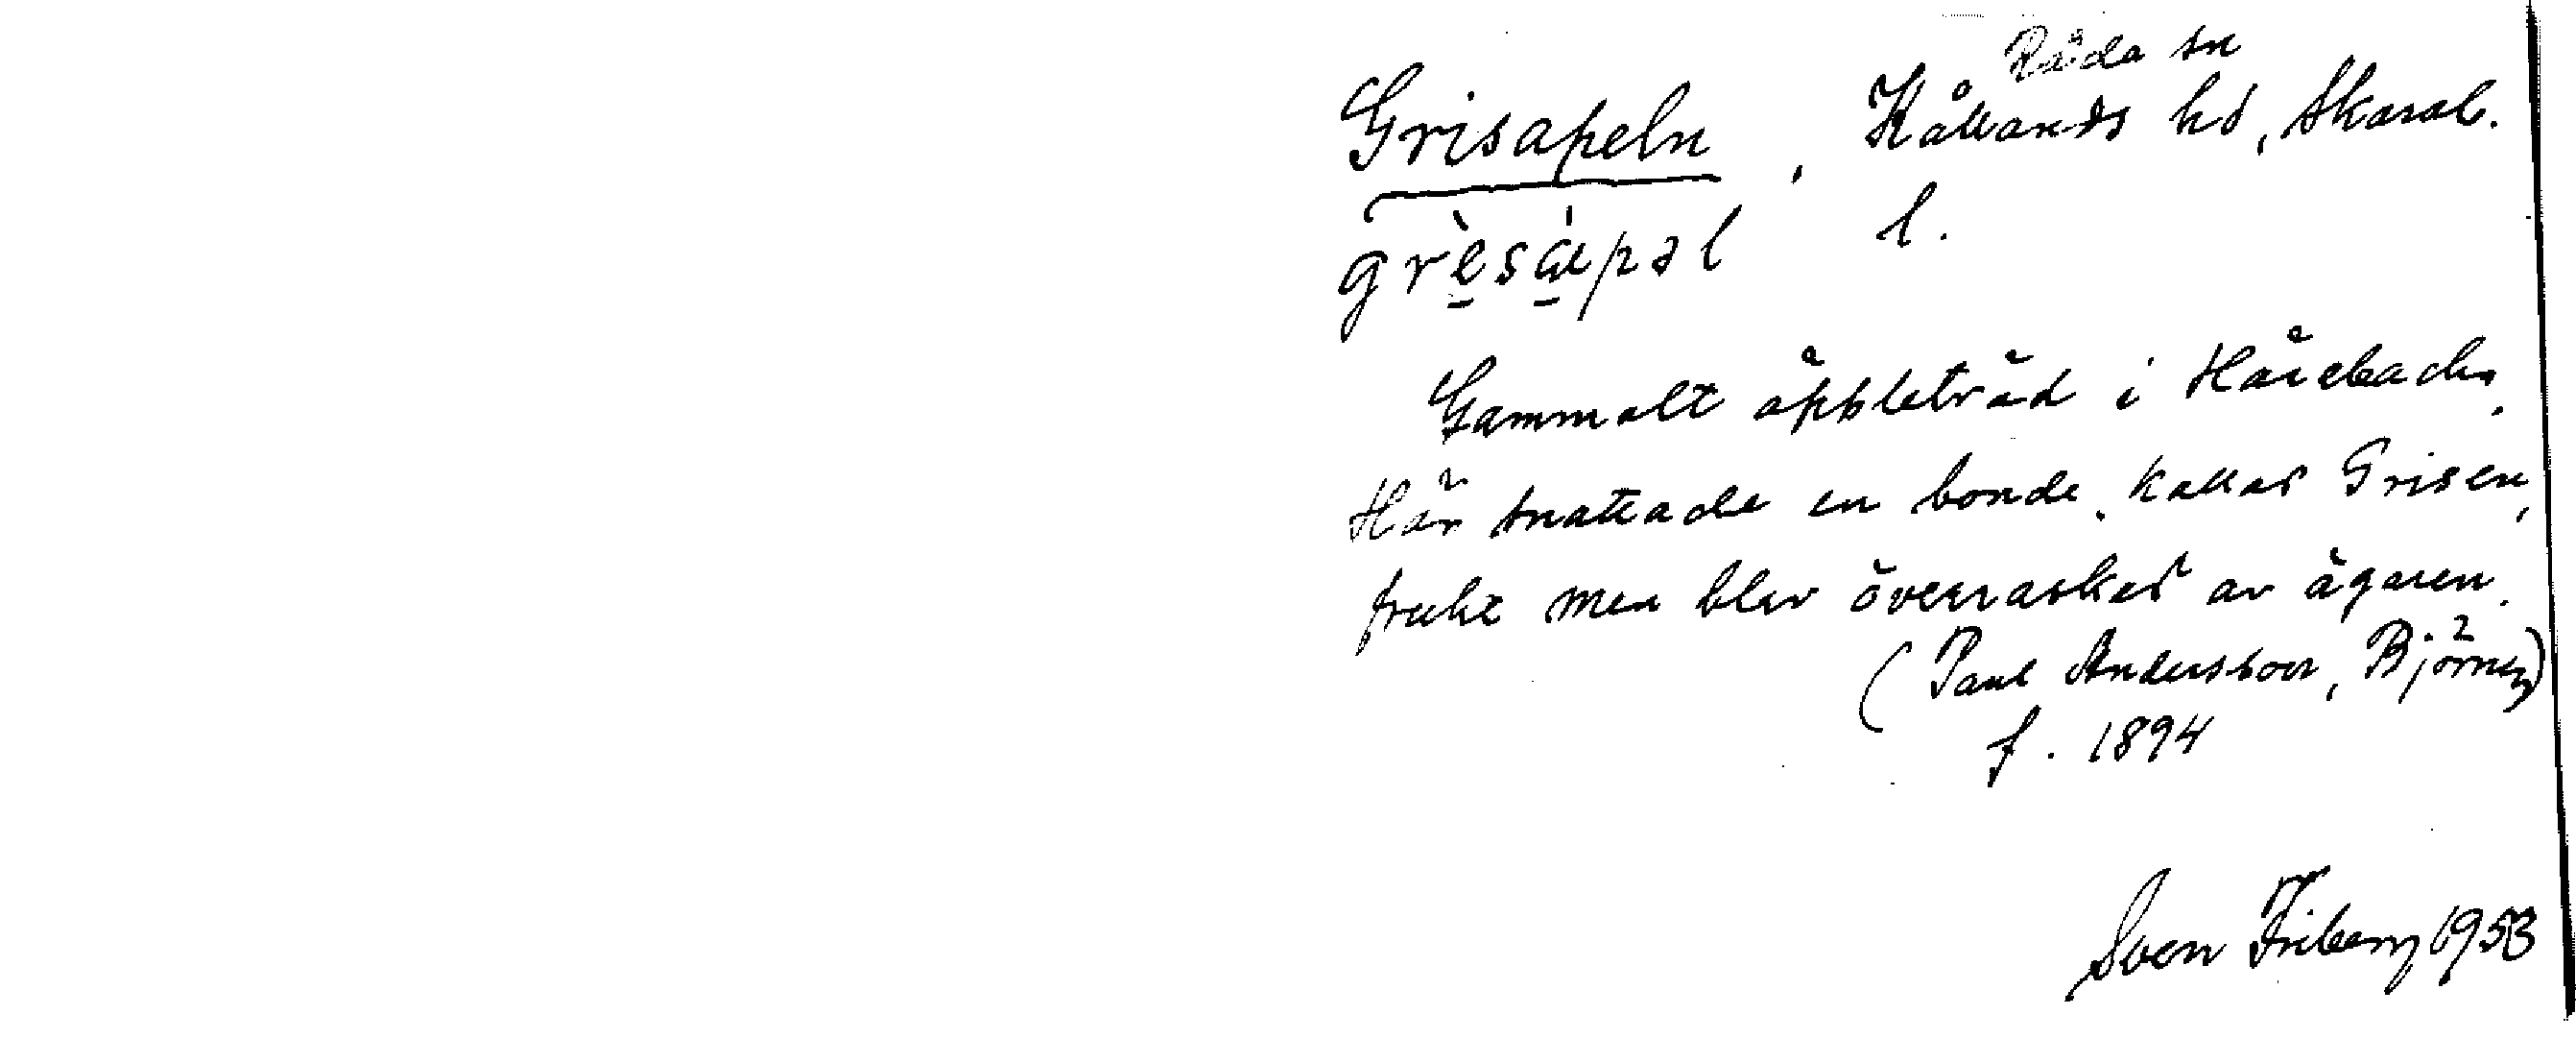 Råda sn
Grisapeln, Kållands hd, Skarab.
l.
grèsápəl
Gammalt äppleträd i Hårebacka.
Här snattade en bonde, kallad Grisen,
frukt men blev överraskad av ägaren.
(Paul Andersson, Björneg)
f. 1894
Sven Friberg 1953